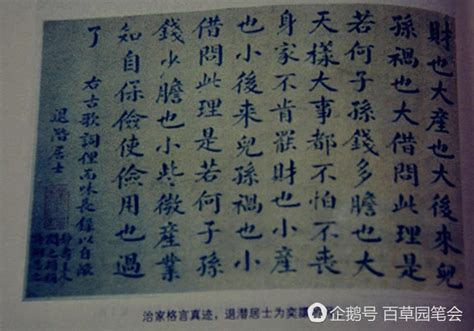 財也大產也大後來兒
孫禍也大借問此理是
若何子孫錢多膽也大
天樣大事都不怕不喪
身家不肯罷財也小產
也小後來兒孫禍也小
借問此理是若何子孫
錢少膽也小些微產業
知自保儉使儉用也過
了
右古歌詞俚而味長錄以自儆
退潛居士
治家格言真迹，退潜居士为奕譞
企鹅号 百草园笔会